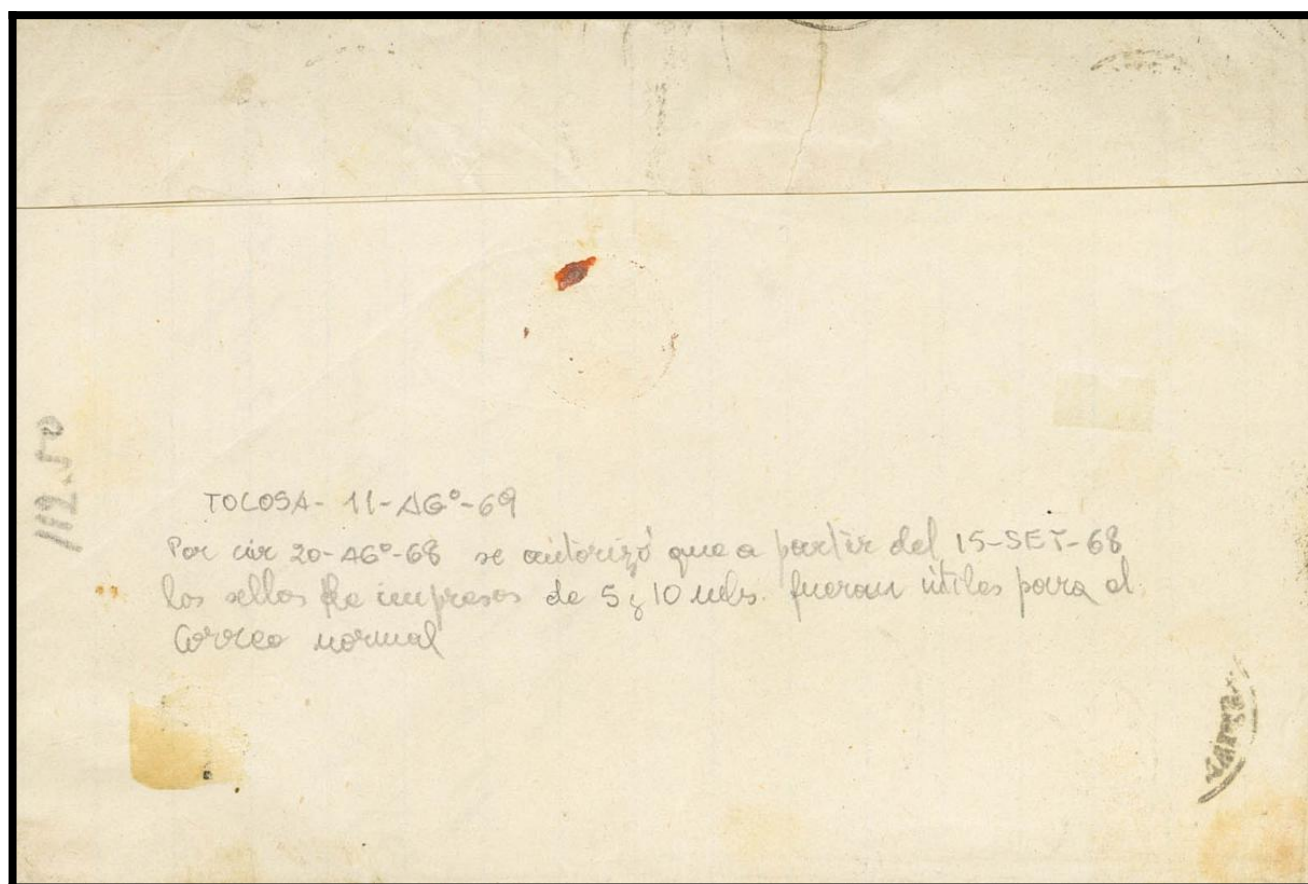 112.50
TOLOSA- 11-AGº-69
Por cir 20-AGº-68 se autorizó que a partir del 15-SET-68
los sellos de impresos de 5 y 10 mls. fueran útiles para el
Correo normal